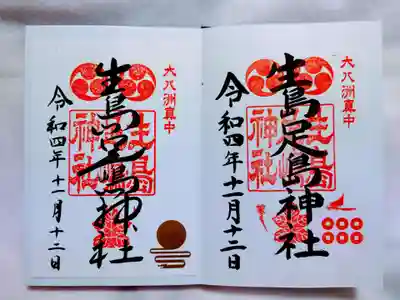 大八洲真中
生島足島神社
令和四年十一月十二日
大八洲真中
生島足嶋神社
令和四年十一月十二日